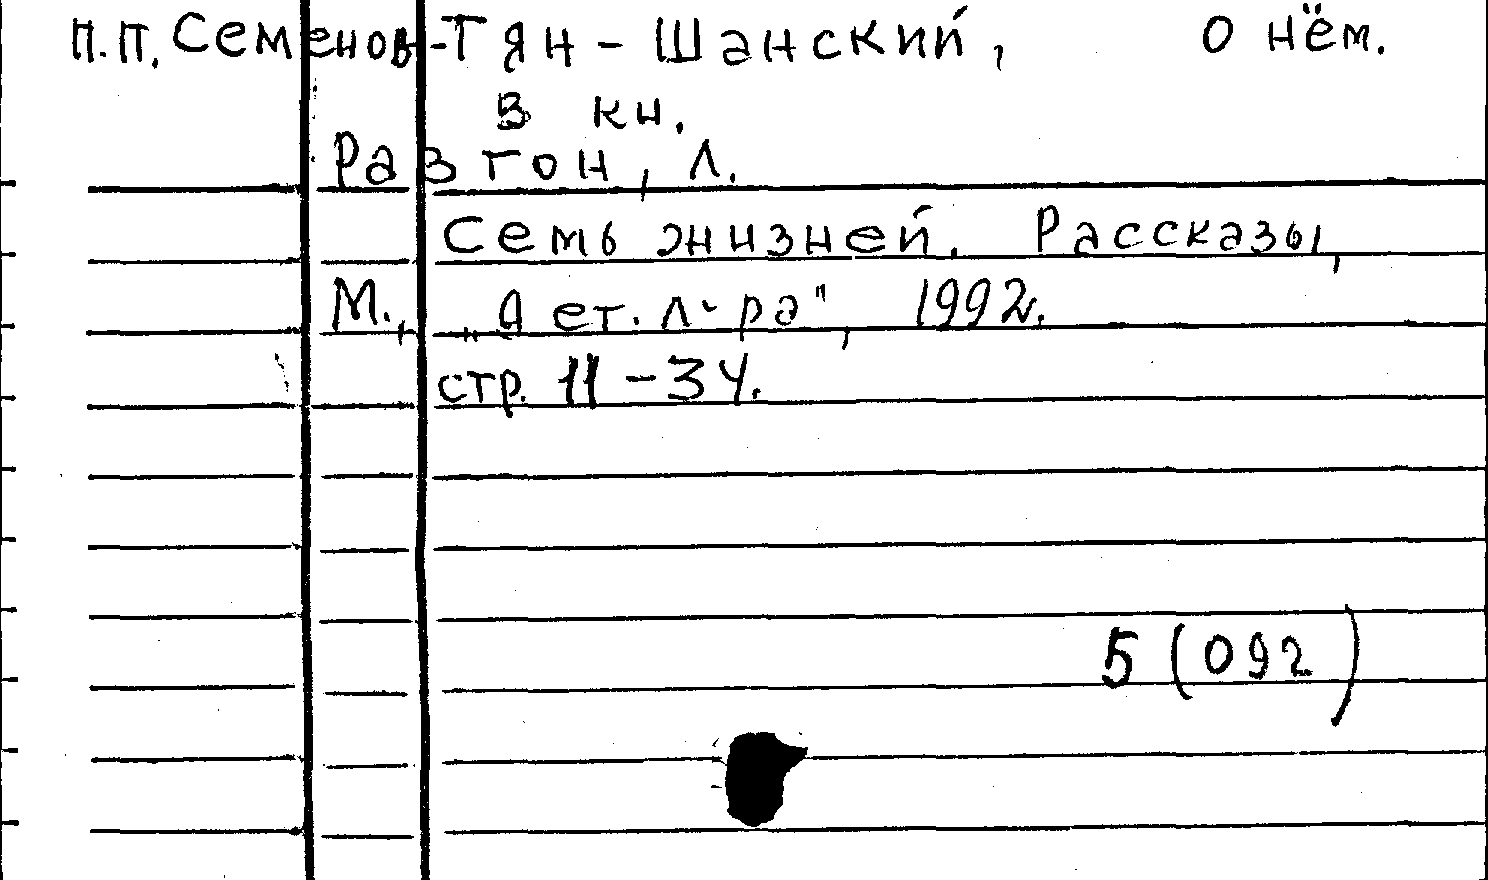 П.П. Семенов-Тян-Шанский, о нём.
в кн.
Разгон, Л.
Семь жизней. Рассказы,
М., „Дет. л-ра", 1992.
стр. 11-34.
5 (092)